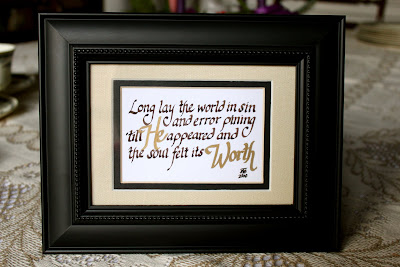 Long lay the world in sin
and error pining
till He appeared and
the soul felt its Worth